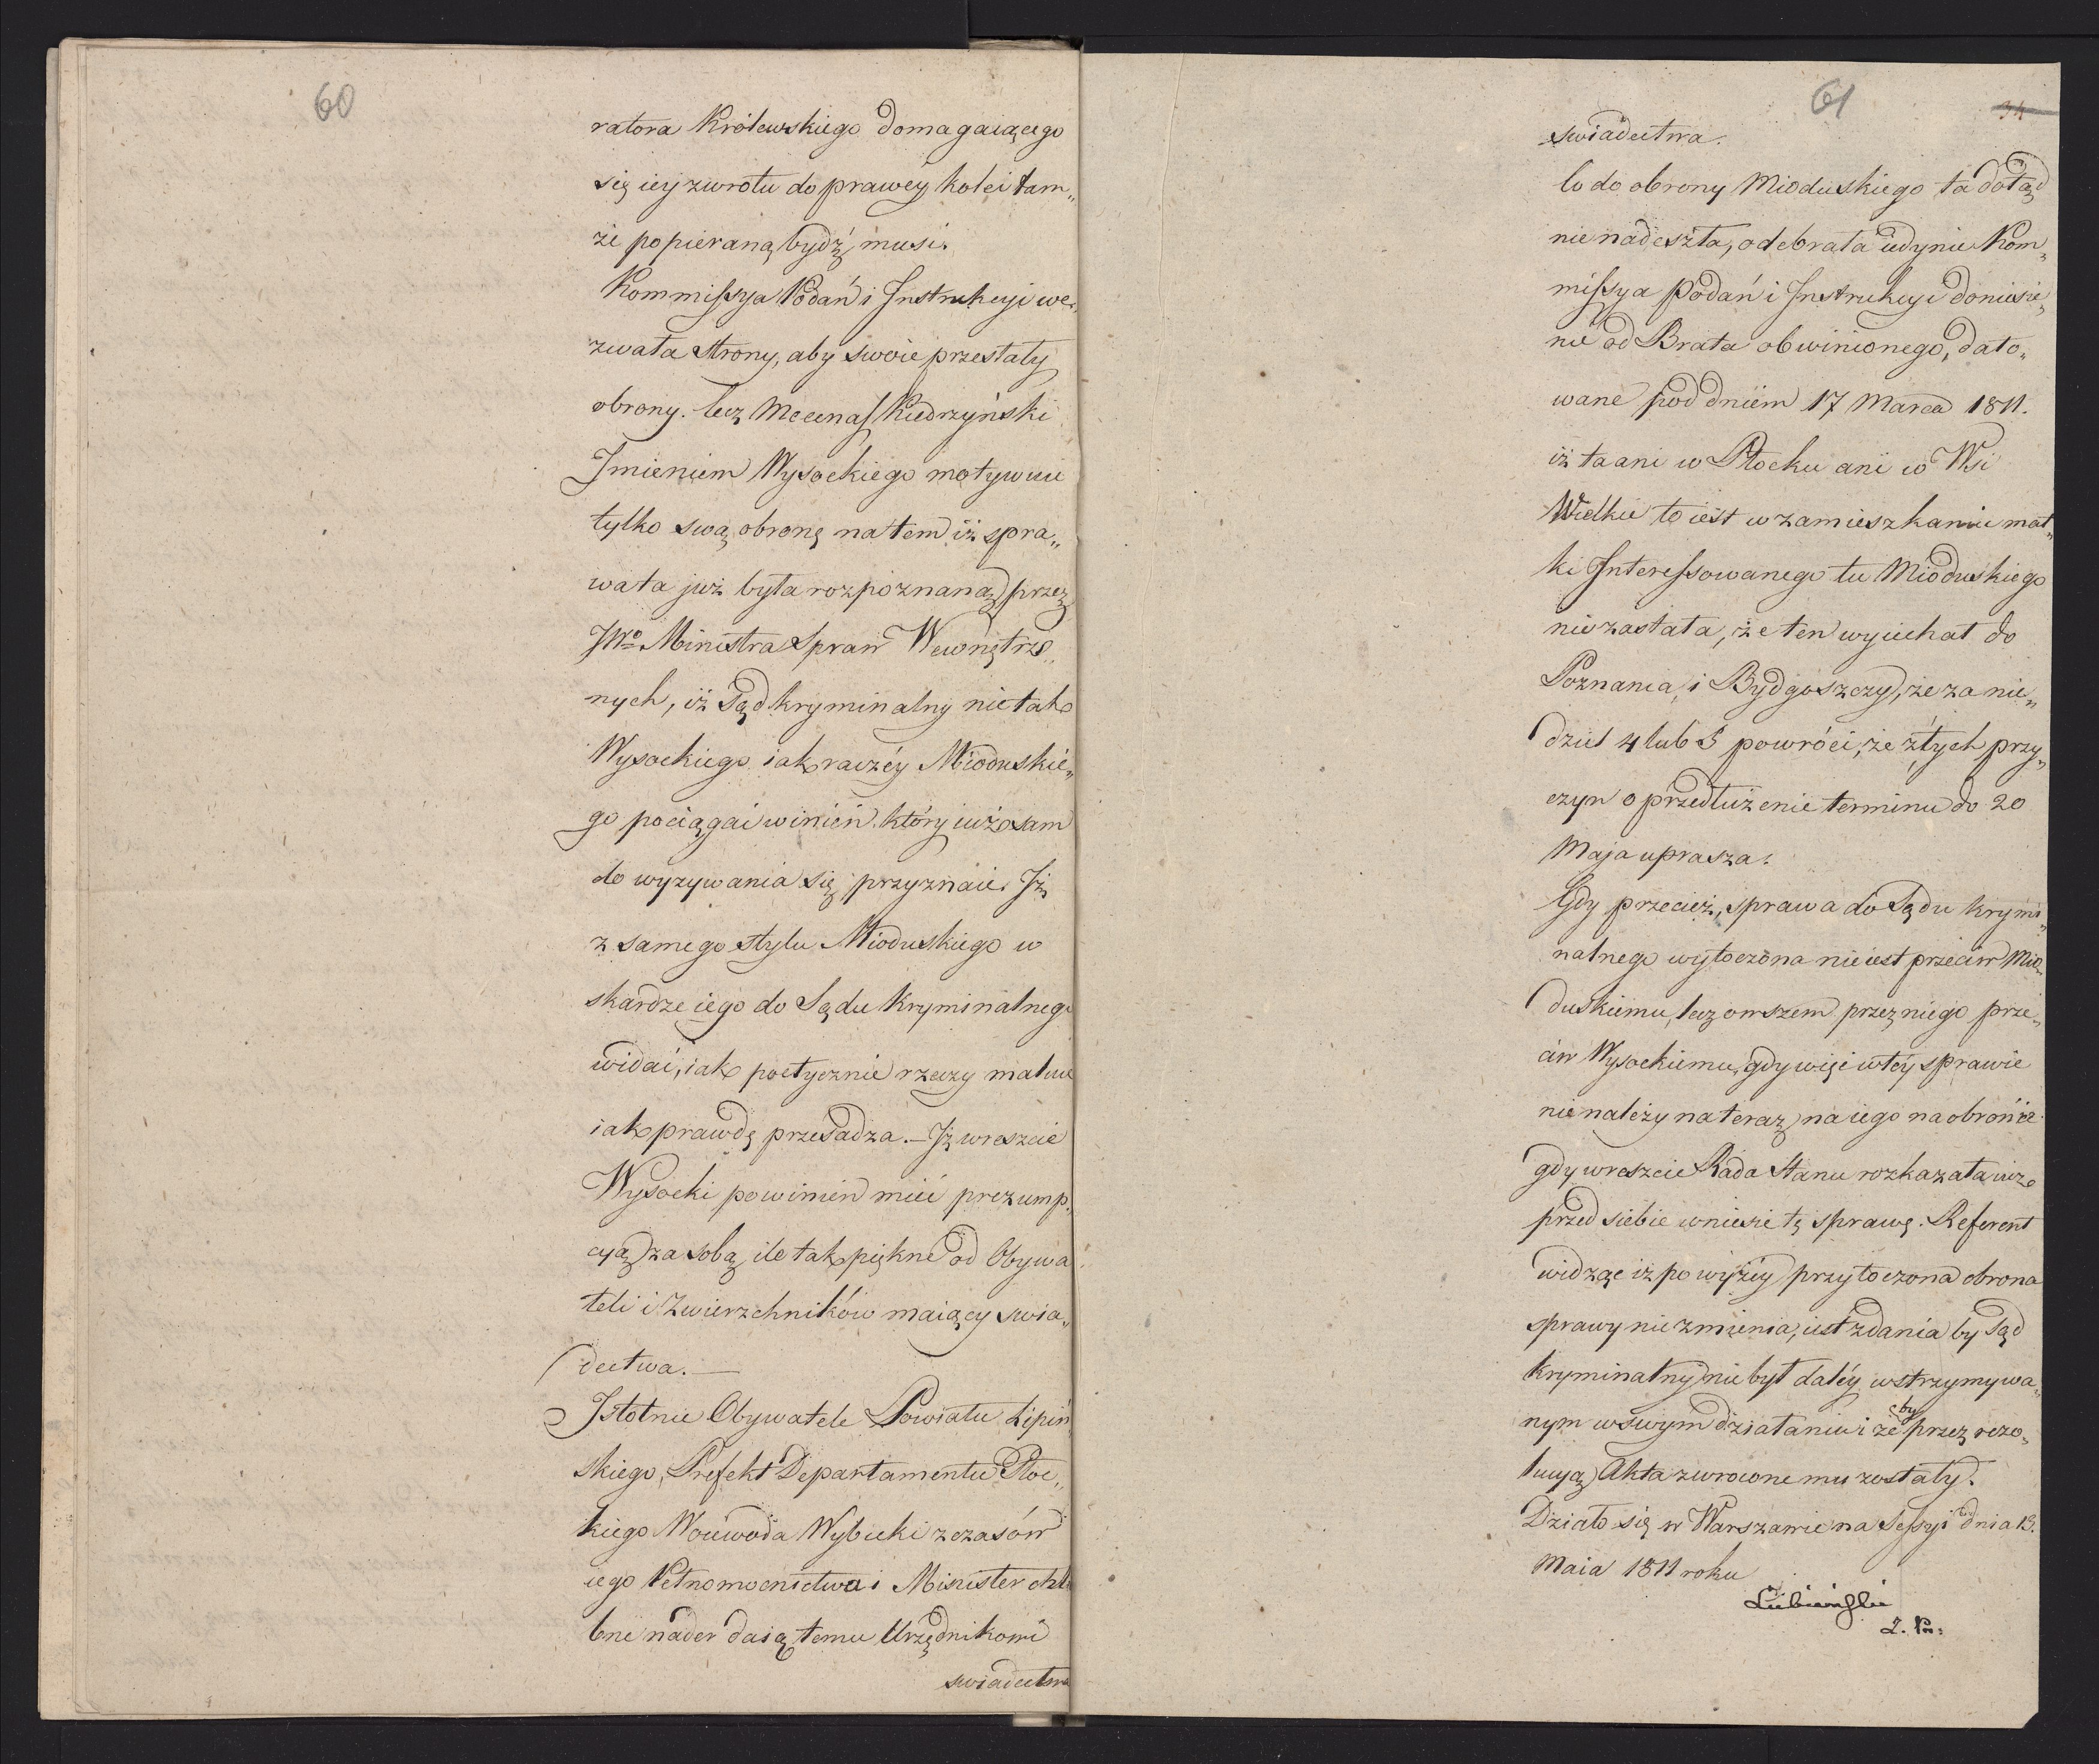 60
ratora Królewskiego domagaiącego
się iey zwrotu do prawey kolei tam„
że popieraną bydź musi.
Kommissya Podań i Instrukcyi we„
zwała Strony, aby swoie przesłały
obrony. lecz Mecenas Kiedrzyński
Imieniem Wysockiego motywuie
tylko swą obronę na tem iż spra„
wa ta już była rozpoznaną przez
JWo Ministra Spraw Wewnętrz„
nych, iż Sąd kryminalny nie tak
Wysockiego iak raczéy Mioduskie„
go pociągać winien. który iuż sam
do wyzywania się przyznaie. Iż
z samego stylu Mioduskiego w
skardze iego do Sądu Kryminalnego
widać, iak poetycznie rzeczy maluie
iak prawdę przesadza. — Iż wreszcie
Wysocki powinien mieć prezump„
cyą za sobą ile tak piękne od Obywa
teli i Zwierzchników maiący swia„
dectwa. —
Istotnie Obywatele Powiatu Lipiń
skiego, Prefekt Departamentu Płoc„
kiego Woiewoda Wybicki z czasów
iego Pełnomocnictwa i Minister chlu
bne nader daią temu Urzędnikowi
swiadectwa
61
34
swiadectwa.
Co do obrony Mioduskiego ta dotąd
nie nadeszła, odebrała iedynie Kom„
missya Podań i Instrukcyi doniesie„
nie od Brata obwinionego, dato„
wane pod dniem 17 Marca 1811.
iż ta ani w Płocku ani w Wsi
Wielkie to iest w zamieszkaniu mat„
ki Interessowanego tu Mioduskiego
nie zastała, że ten wyiechał do
Poznania i Bydgoszczy, że za nie„
dziel 4 lub 5 powróci, że z tych przy„
czyn o przedłużenie terminu do 20
Maja uprasza.
Gdy przecież, sprawa do Sądu krymi„
nalnego wytoczona nie iest przeciw Mio„
duskiemu, lecz owszem przez niego prze„
ciw Wysockiemu, gdy więc w téy sprawie
nie należy na teraz na iego na obronie
gdy wreszcie Rada Stanu rozkazała iuż
przed siebie wniesie tę sprawę. Referent
widząc iż powyżéy przytoczona obrona
sprawy nie zmienia, iest zdania by Sąd
kryminalny nie był daléy wstrzymywa„
nym w swym działaniu i żeby przez rezo„
lucyą Akta zwrócone mu zostały.
Działo się w Warszawie na Sessyi dnia 13.
Maia 1811 roku
Lubieński